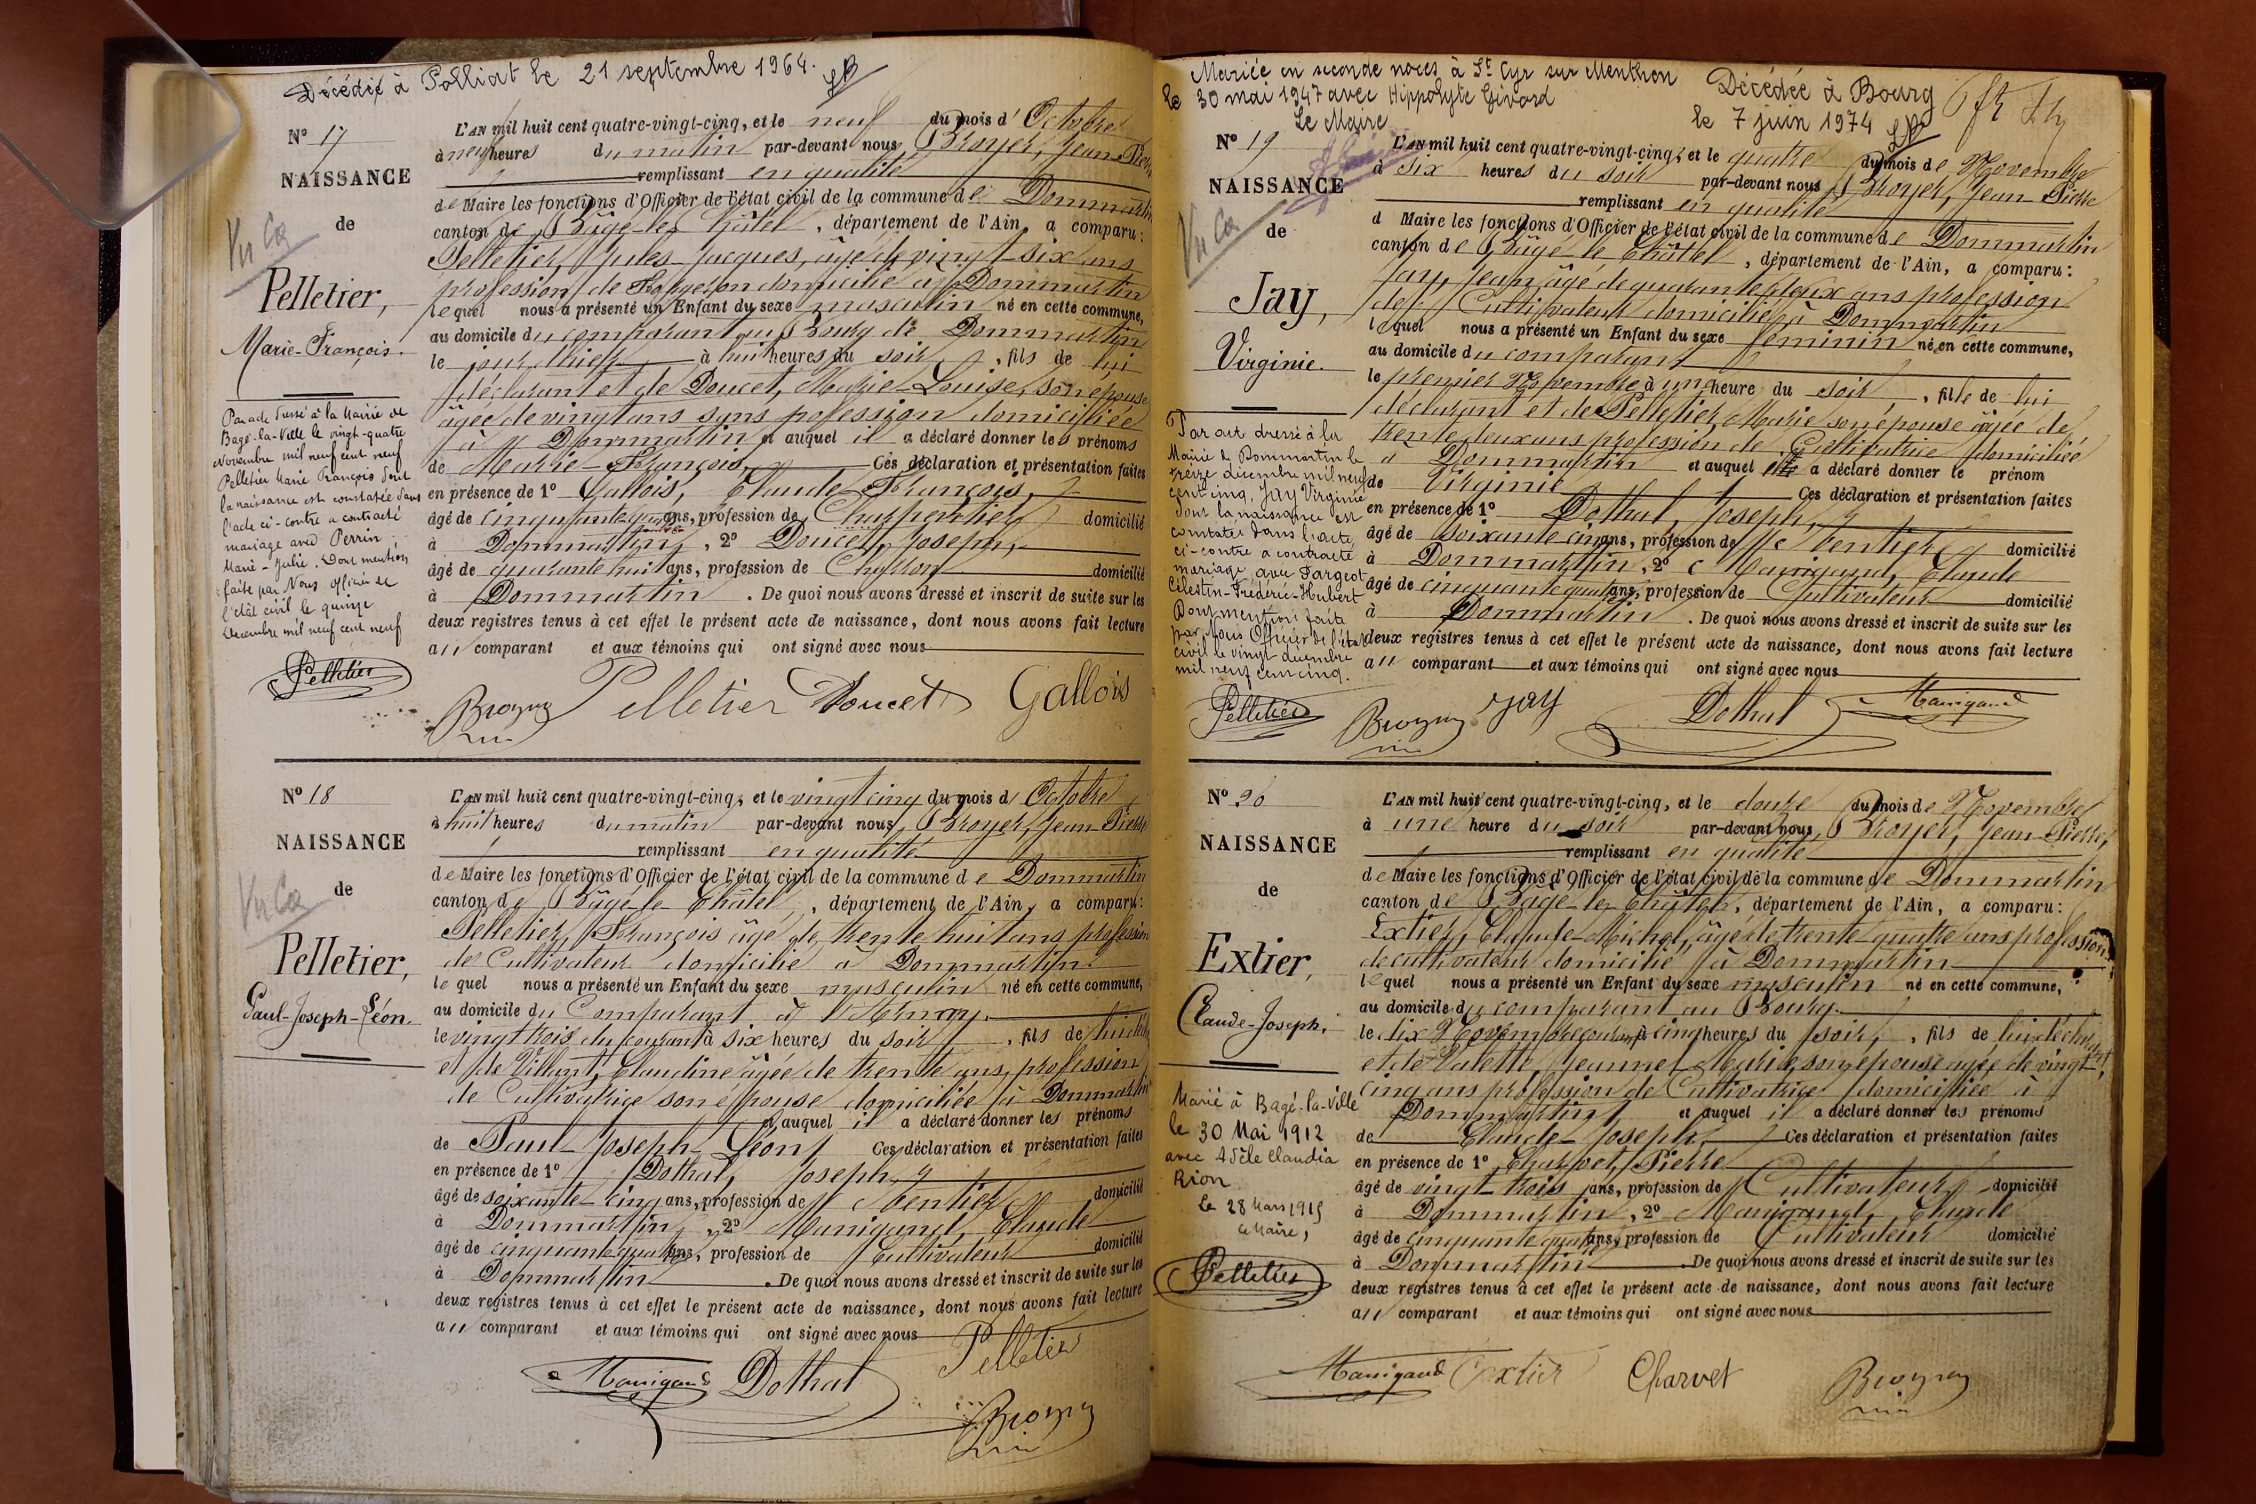 Décédé à Polliat le 21 septembre 1964.
N° 17
NAISSANCE
de
Pelletier,
Marie-François.
Vu
L'AN mil huit cent quatre-vingt-cinq, et le neuf du mois d'Octobre
à neuf heures du matin par-devant nous Broyer, Jean-Pierre
remplissant en qualité
de Maire les fonctions d'Officier de l'état civil de la commune de Dommartin
canton de Bâgé-le-Châtel, département de l'Ain, a comparu:
Pelletier, Jules-Jacques, âgé de vingt-six ans
profession de domicilié à Dommartin
lequel nous a présenté un Enfant du sexe masculin né en cette commune,
au domicile du comparant au Bourg de Dommartin
le jour d'hier à huit heures du soir, fils de lui
déclarant et de Doucet, Marie-Louise, son épouse
âgée de vingt ans sans profession domiciliée
à Dommartin et auquel il a déclaré donner les prénoms
de Marie-François. Ces déclaration et présentation faites
en présence de 1° Gallois, Claude François,
âgé de cinquante ans, profession de Charpentier domicilié
à Dommartin, 2° Doucet, Joseph,
âgé de quarante huit ans, profession de domicilié
à Dommartin. De quoi nous avons dressé et inscrit de suite sur les
deux registres tenus à cet effet le présent acte de naissance, dont nous avons fait lecture
au comparant et aux témoins qui ont signé avec nous
Par acte dressé à la Mairie de
Bagé-la-Ville le vingt-quatre
Novembre mil neuf cent neuf
Pelletier Marie François dont
la naissance est constatée dans
l'acte ci-contre a contracté
mariage avec Perrin
Marie-Julie. Dont mention
faite par Nous officier de
l'état civil le quinze
Décembre mil neuf cent neuf
Pelletier
Broyer Pelletier Doucet Gallois
N° 18
NAISSANCE
de
Pelletier,
Paul-Joseph-Léon.
Vu
L'AN mil huit cent quatre-vingt-cinq, et le vingt cinq du mois d'Octobre
à huit heures du matin par-devant nous Broyer, Jean-Pierre
remplissant en qualité
de Maire les fonctions d'Officier de l'état civil de la commune de Dommartin
canton de Bâgé-le-Châtel, département de l'Ain, a comparu:
Pelletier, François âgé de trente huit ans profession
de Cultivateur domicilié à Dommartin
lequel nous a présenté un Enfant du sexe masculin né en cette commune,
au domicile du Comparant à
le vingt trois du courant à six heures du soir, fils de lui
et de Villard, Claudine âgée de trente ans, profession
de Cultivatrice son épouse domiciliée à Dommartin
et auquel il a déclaré donner les prénoms
de Paul-Joseph-Léon Ces déclaration et présentation faites
en présence de 1° Dothal, Joseph,
âgé de soixante-cinq ans, profession de Rentier domicilié
à Dommartin, 2° Manigand, Claude
âgé de cinquante quatre ans, profession de Cultivateur domicilié
à Dommartin. De quoi nous avons dressé et inscrit de suite sur les
deux registres tenus à cet effet le présent acte de naissance, dont nous avons fait lecture
au comparant et aux témoins qui ont signé avec nous
Pelletier
Manigand Dothal
Broyer
Mariée en seconde noces à St Cyr sur Menthon
le 30 mai 1947 avec Hippolyte Givord
Le Maire
Décédée à Bourg
le 7 juin 1974
N° 19
NAISSANCE
de
Jay,
Virginie.
Vu
L'AN mil huit cent quatre-vingt-cinq, et le quatre du mois de Novembre
à six heures du soir par-devant nous Broyer, Jean-Pierre
remplissant en qualité
d Maire les fonctions d'Officier de l'état civil de la commune de Dommartin
canton de Bâgé-le-Châtel, département de l'Ain, a comparu:
Jay, Jean âgé de quarante deux ans profession
de Cultivateur domicilié à Dommartin
lequel nous a présenté un Enfant du sexe féminin né en cette commune,
au domicile du comparant
le premier Novembre à une heure du soir, fille de lui
déclarant et de Pelletier, Marie son épouse âgée de
trente deux ans profession de Cultivatrice domiciliée
à Dommartin et auquel il a déclaré donner le prénom
de Virginie Ces déclaration et présentation faites
en présence de 1° Dothal, Joseph,
âgé de soixante cinq ans, profession de Rentier domicilié
à Dommartin, 2° Manigand, Claude
âgé de cinquante quatre ans, profession de Cultivateur domicilié
à Dommartin. De quoi nous avons dressé et inscrit de suite sur les
deux registres tenus à cet effet le présent acte de naissance, dont nous avons fait lecture
au comparant et aux témoins qui ont signé avec nous
Par acte dressé à la
Mairie de Dommartin le
treize décembre mil neuf
cent cinq, Jay Virginie
dont la naissance est
constatée dans l'acte
ci-contre a contracté
mariage avec Fargeot
Célestin-Frédéric-Hubert
Dont mention faite
par Nous Officier de l'état
civil le vingt décembre
mil neuf cent cinq.
Pelletier
Broyer Jay Dothal Manigand
N° 20
NAISSANCE
de
Extier,
Claude-Joseph.
L'AN mil huit cent quatre-vingt-cinq, et le douze du mois de Novembre
à une heure du soir par-devant nous Broyer, Jean-Pierre,
remplissant en qualité
de Maire les fonctions d'Officier de l'état civil de la commune de Dommartin
canton de Bâgé-le-Châtel, département de l'Ain, a comparu:
Extier, Claude-Michel, âgé de trente-quatre ans profession
de cultivateur domicilié à Dommartin
lequel nous a présenté un Enfant du sexe masculin né en cette commune,
au domicile du comparant au Bourg
le dix Novembre courant à cinq heures du soir, fils de lui déclarant
et de Valette, Jeanne-Marie, son épouse âgée de vingt
cinq ans profession de Cultivatrice domiciliée à
Dommartin et auquel il a déclaré donner les prénoms
de Claude-Joseph, Ces déclaration et présentation faites
en présence de 1° Charvet, Pierre
âgé de vingt-trois ans, profession de Cultivateur domicilié
à Dommartin, 2° Manigand, Claude
âgé de cinquante quatre ans, profession de Cultivateur domicilié
à Dommartin De quoi nous avons dressé et inscrit de suite sur les
deux registres tenus à cet effet le présent acte de naissance, dont nous avons fait lecture
au comparant et aux témoins qui ont signé avec nous
Marié à Bagé-la-Ville
le 30 Mai 1912
avec Adèle Claudia
Rion
Le 28 Mars 1915
Le Maire,
Pelletier
Manigand Extier Charvet Broyer